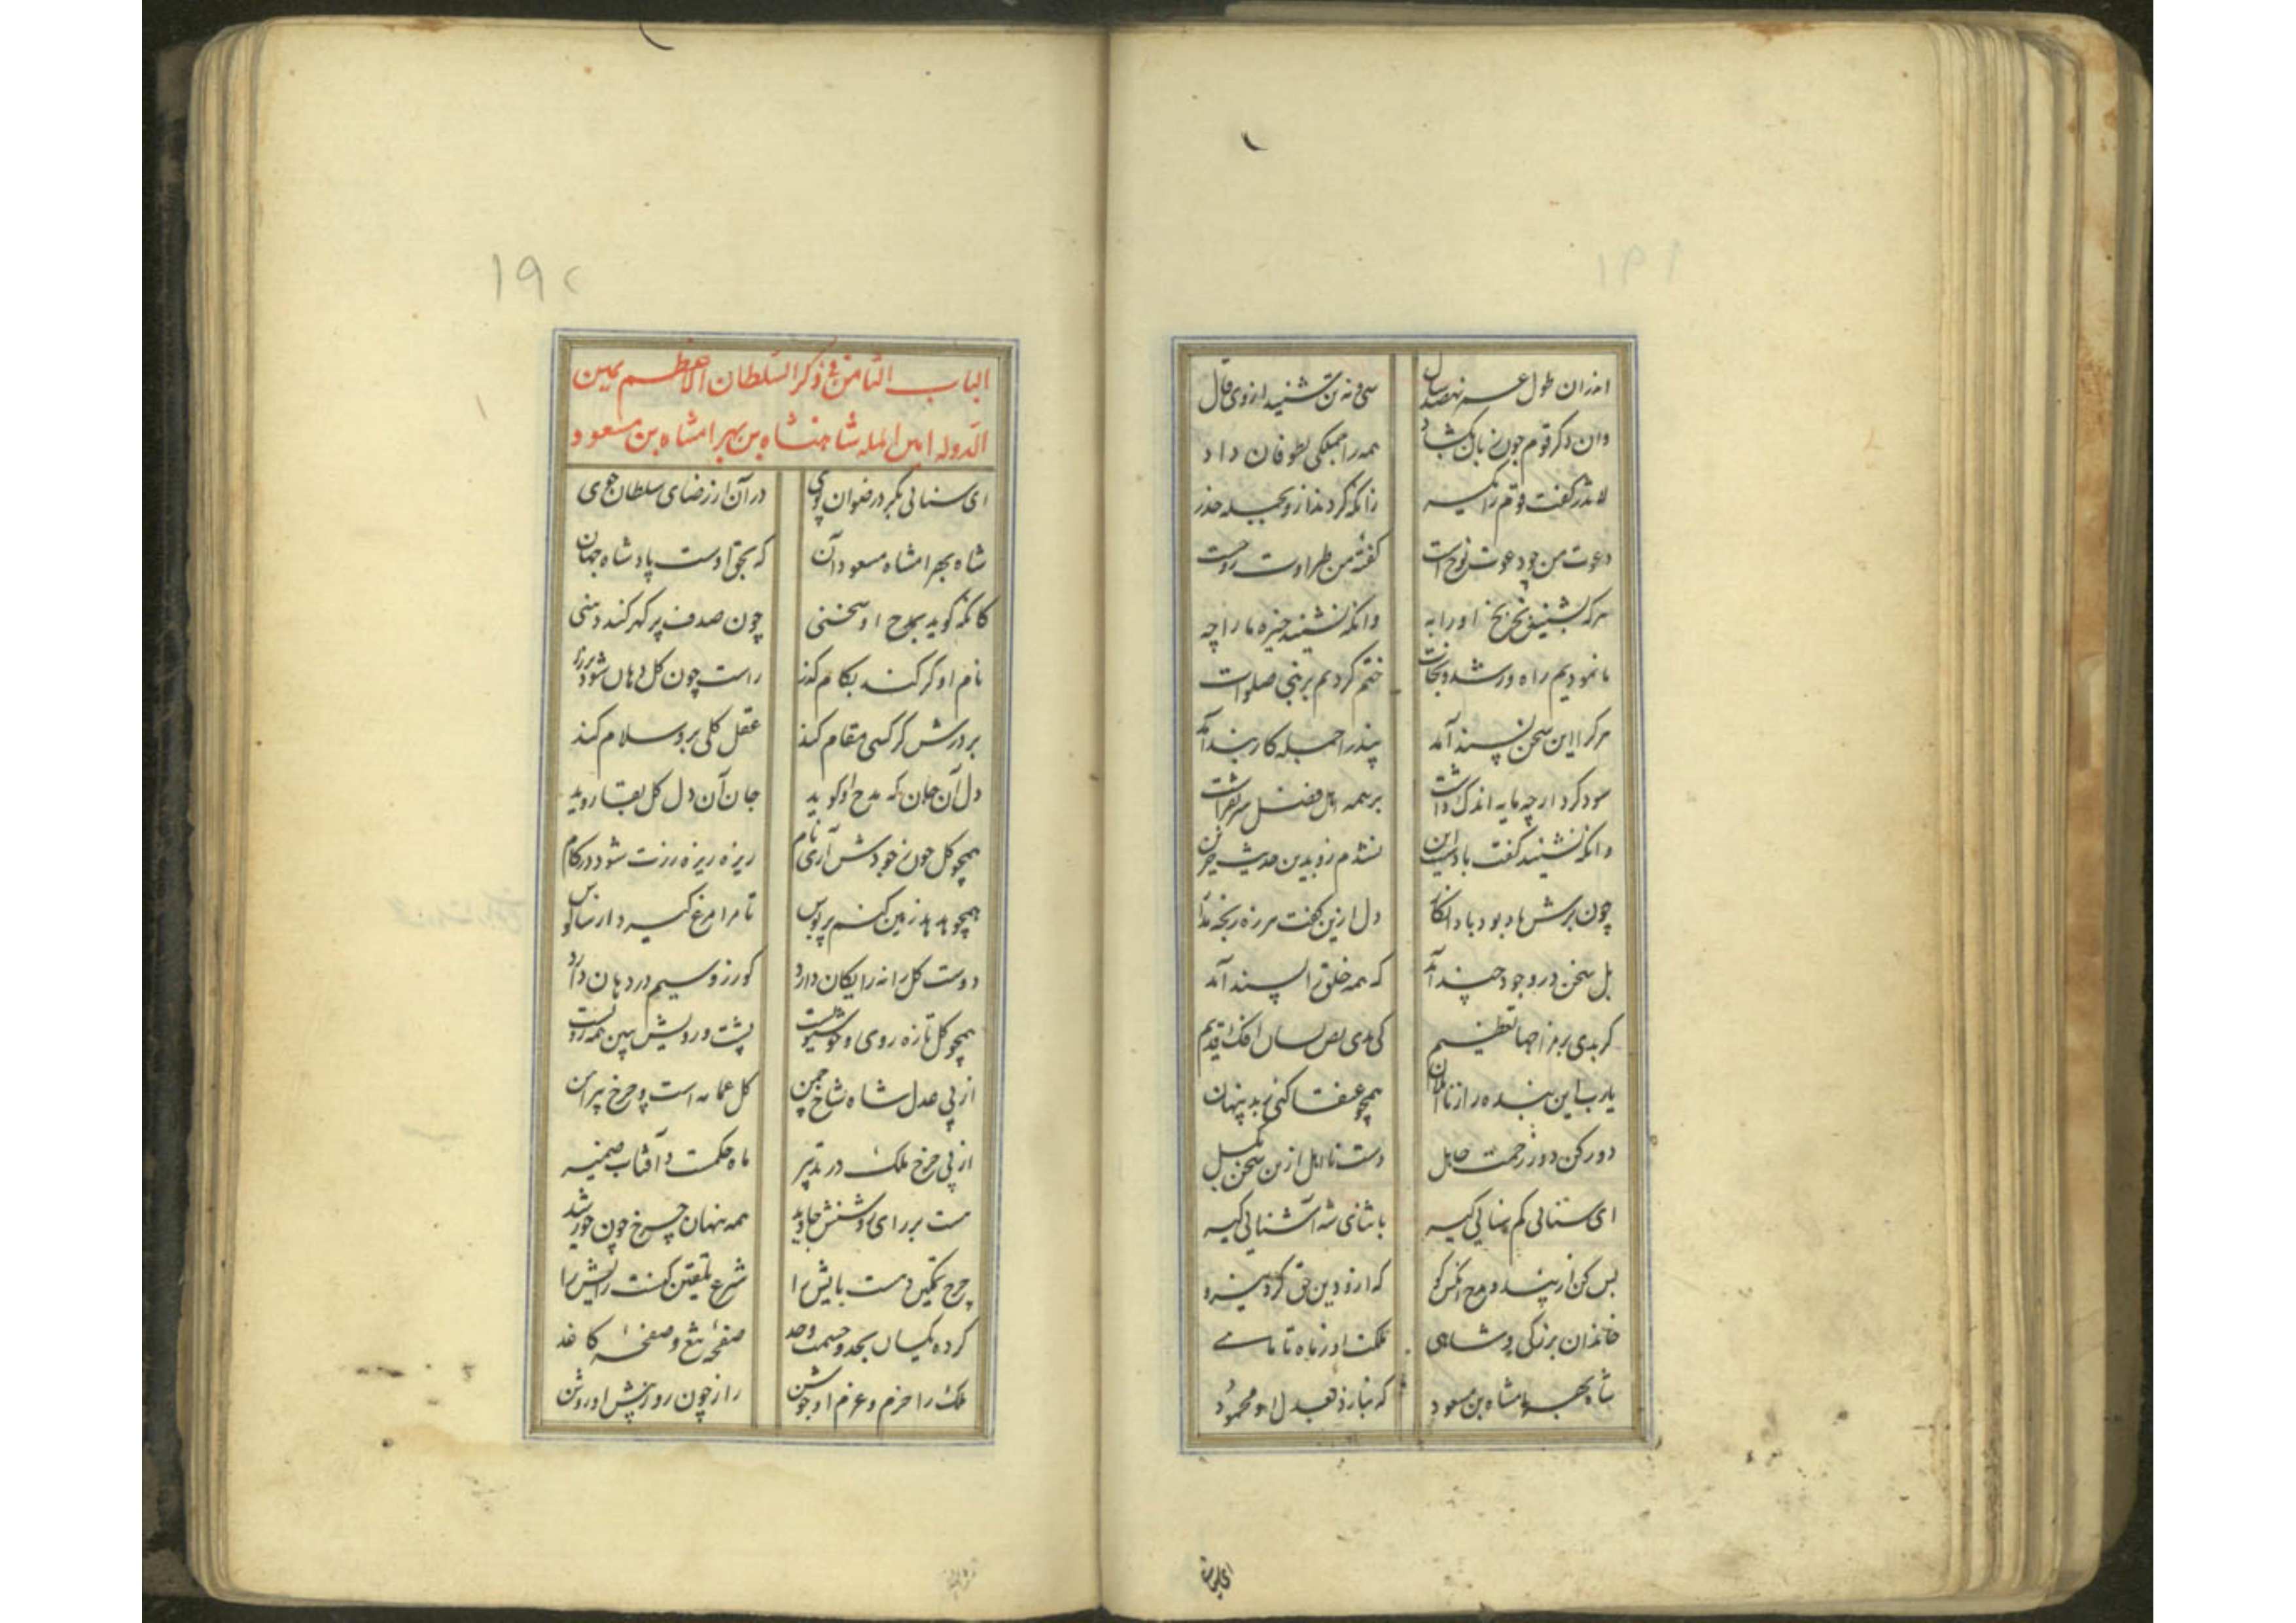 اندران طول عمر نهصد سال
سی و نه تن شنید از وی قال
وان دگر قوم چون زبان بگشاد
همه را جملگی بطوفان داد
لاتذر گفت و قوم را یکسر
زانکه کردند ازو بحیله حذر
دعوت من چو دعوت نوح است
گفتهٔ من طراوت روح است
هرکه بشنید بخ بخ او را به
وانکه نشنید خیره ما را چه
ما نمودیم راه رشد و نجات
ختم کردیم بر نبی صلوات
هر کرا این سخن پسند آمد
پند را جمله کاربند آمد
سود کرد ار چه مایه اندک داشت
بر همه اهل فضل سر بفراشت
وانکه نشنید گفت باد است این
نشدم زو بدین حدیث حزین
چون برش باد بود باد انگار
دل ازین گفت هرزه رنجه مدار
بل سخن در وجود چند آمد
که همه خلق را پسند آمد
گر بدی بر مزاجها تعظیم
کی بدی نص لسان افک قدیم
یارب این بنده را ز نااهلان
همچو عنقا کنی ز بد پنهان
دور کن دور زحمت جاهل
دست نااهل ازین سخن بگسل
ای سنائی کم سنائی گیر
با ثنای شه آشنائی گیر
بس کن از پند و مدح آنکس گو
که ازو دین حق گرد نیرو
خاندان بزرگی و شاهی
ملکت او ز ماه تا ماهی
شاه بهرامشاه بن مسعود
که بنازد بعدل او محمود
ای سنائی
۱۹۲
الباب الثامن فی ذکر السلطان الاعظم یمین
الدوله امین المله شاهنشاه بن بهرامشاه بن مسعود
ای سنائی بگرد رضوان پوی
در آن از رضای سلطان جوی
شاه بهرامشاه مسعود آن
که بحق اوست پادشاه جهان
کانکه گوید بمدح او سخنی
چون صدف پر گهر کند دهنی
نام او گر کند بکام گذر
راست چون گل دهان شود پر زر
بر درش گر کسی مقام کند
عقل کلی برو سلام کند
دل آن جان که مدح او گوید
جان آن دل گل بقا روید
همچو گل چون ز جودش آری نام
ریزه ریزه زرت شود در کام
همچو هدهد زمین کنم پر بوس
تا مرا مرغ گیرد ار ناکوس
دوست گل را نه رایگان دارد
کو زر و سیم در دهان دارد
همچو گل تازه روی و خوشبویست
پشت و رویش ببین همه رویست
از پی عدل شاه شاخ چمن
گل عمامه است و چرخ پیراهن
از پی چرخ ملک در تدبیر
ماه حکمت و آفتاب ضمیر
هست بر رای روشنش جاوید
همه پنهان چرخ چون خورشید
چرخ تمکین دست پایش را
شرع تلقین کنست رایش را
کرده یکسان بجد و حشمت و حد
صفحهٔ تیغ و صفحهٔ کاغذ
ملک را حزم و عزم او جوشن
راز چون روز پیش او روشن